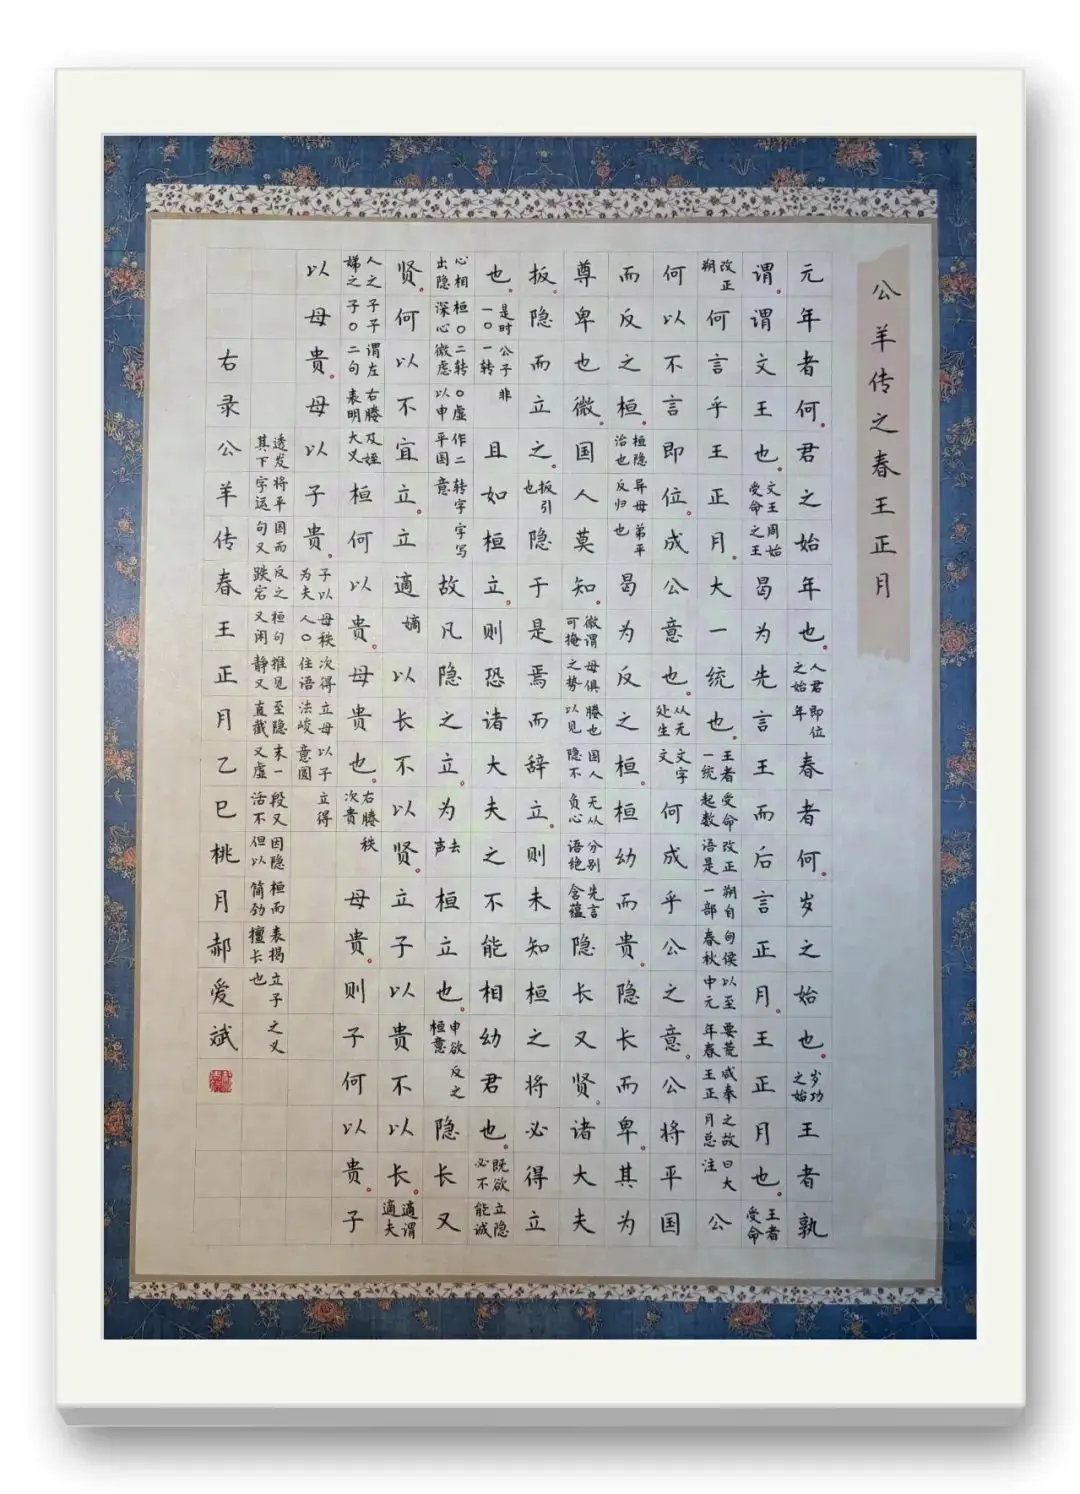 公羊传之春王正月
元年者何君之始年也人君即位之始年春者何岁之始也岁功之始王者孰
谓谓文王也文王周始受命之王曷为先言王而后言正月王正月也王者受命
改正朔何言乎王正月大一统也王者受命改正朔自甸侯以至要荒咸奉之故曰大一统起数语是一部春秋中元年春王正月总注公
何以不言即位成公意也从无文字处生文何成乎公之意公将平国
而反之桓桓隐异母弟平治也反归也曷为反之桓桓幼而贵隐长而卑其为
尊卑也微国人莫知微谓母俱媵也国人无从分别先言可掩之势以见隐不负心语绝含蕴隐长又贤诸大夫
扳隐而立之扳引也隐于是焉而辞立则未知桓之将必得立
也是时公子非一〇一转且如桓立则恐诸大夫之不能相幼君也既欲立隐必不能诚
心相桓〇二转〇虚作二转字字写出隐深心微虑以申平国意故凡隐之立为去声桓立也申欲反之桓意隐长又
贤何以不宜立立適嫡以长不以贤立子以贵不以长適谓適夫
人之子子谓左右媵及姪娣之子〇二句表明大义桓何以贵母贵也右媵秩次贵母贵则子何以贵子
以母贵母以子贵子以母秩次得立母以子立得为夫人〇住语法峻意圆
透发将平国而反之桓句推见至隐末一段又因隐桓而表揭立子之义其下字运句又跌宕又闲静又直截又虚活不但以简劲擅长也
右录公羊传春王正月乙巳桃月郝爱斌